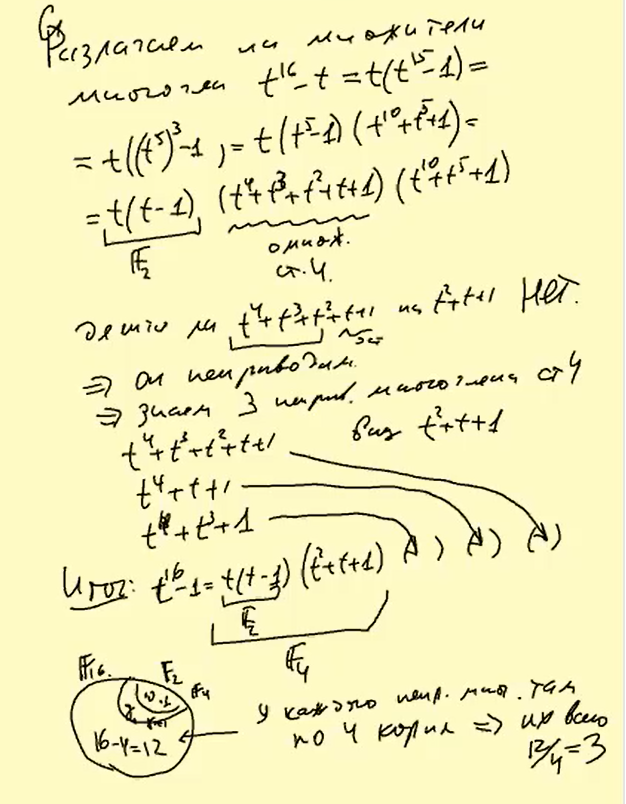 Разлагаем на множители
многочлен t¹⁶ - t = t(t¹⁵-1) =
= t((t⁵)³-1) = t(t⁵-1)(t¹⁰+t⁵+1) =
= t(t-1) (t⁴+t³+t²+t+1) (t¹⁰+t⁵+1)
F₂ множ.
ст. 4.
t⁴+t³+t²+t+1 на t²+t+1 Нет.
⇒ он неприводим.
⇒ знаем 3 неприв. многочлена ст 4
t⁴+t³+t²+t+1 t²+t+1
t⁴+t+1
t⁴+t³+1 ( ) ( ) ( )
Итог: t¹⁶-1 = t(t-1) (t²+t+1)
F₂
F₄
F₁₆ F₂ F₄
0 1
16-4=12
у каждого непр. мног. там
по 4 корня ⇒ их всего
12/4=3